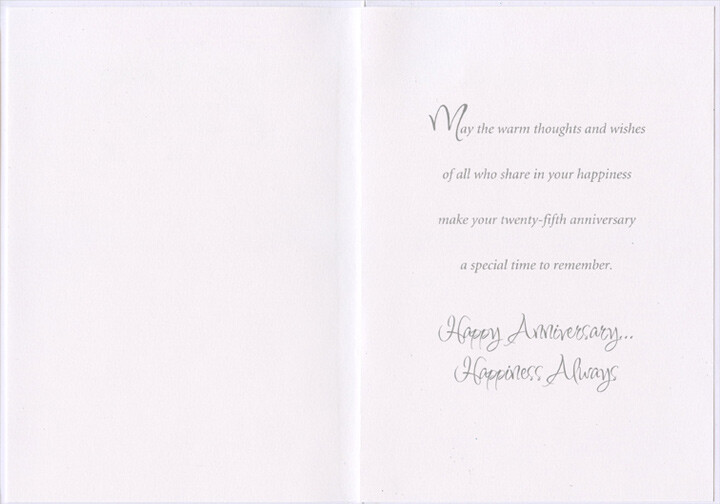 May the warm thoughts and wishes
of all who share in your happiness
make your twenty-fifth anniversary
a special time to remember.
Happy Anniversary...
Happiness Always